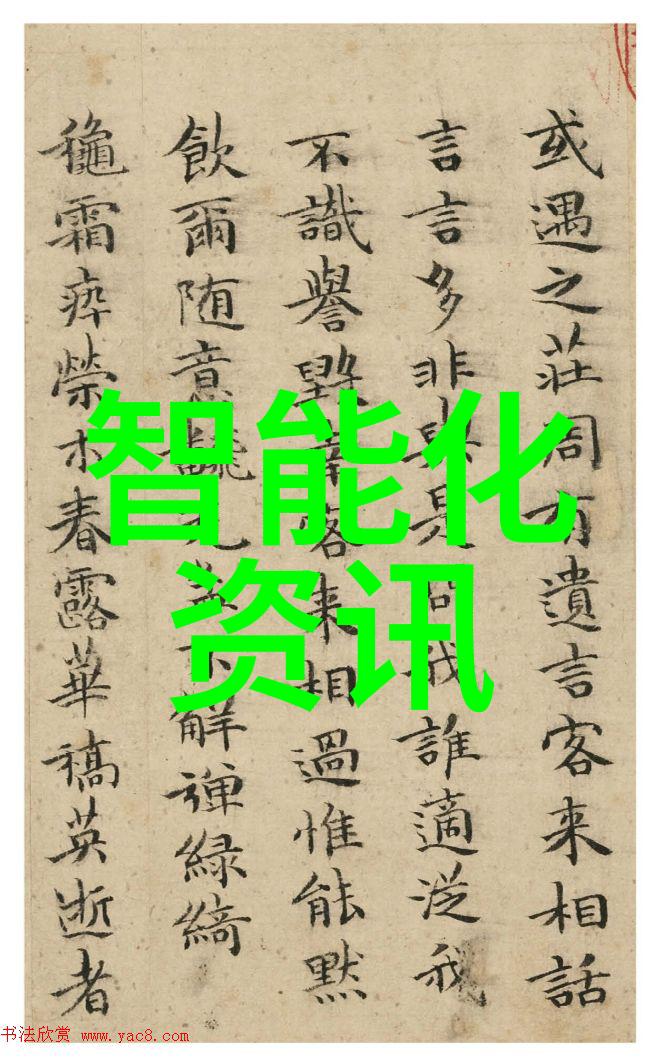 或遇之莊周有遺言客来相話
言言多非與是問我誰適從我
不識譽毀客来相過惟能默
飲爾随意不解彈緑綺
龝霜瘁榮木春露華稿英逝者
智能化
资讯
书法欣赏 www.yac8.com